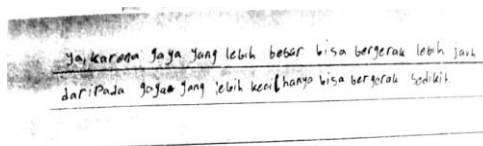 ya, karena gaya yang lebih besar bisa bergerak lebih jauh
daripada gaya yang lebih kecil hanya bisa bergerak sedikit